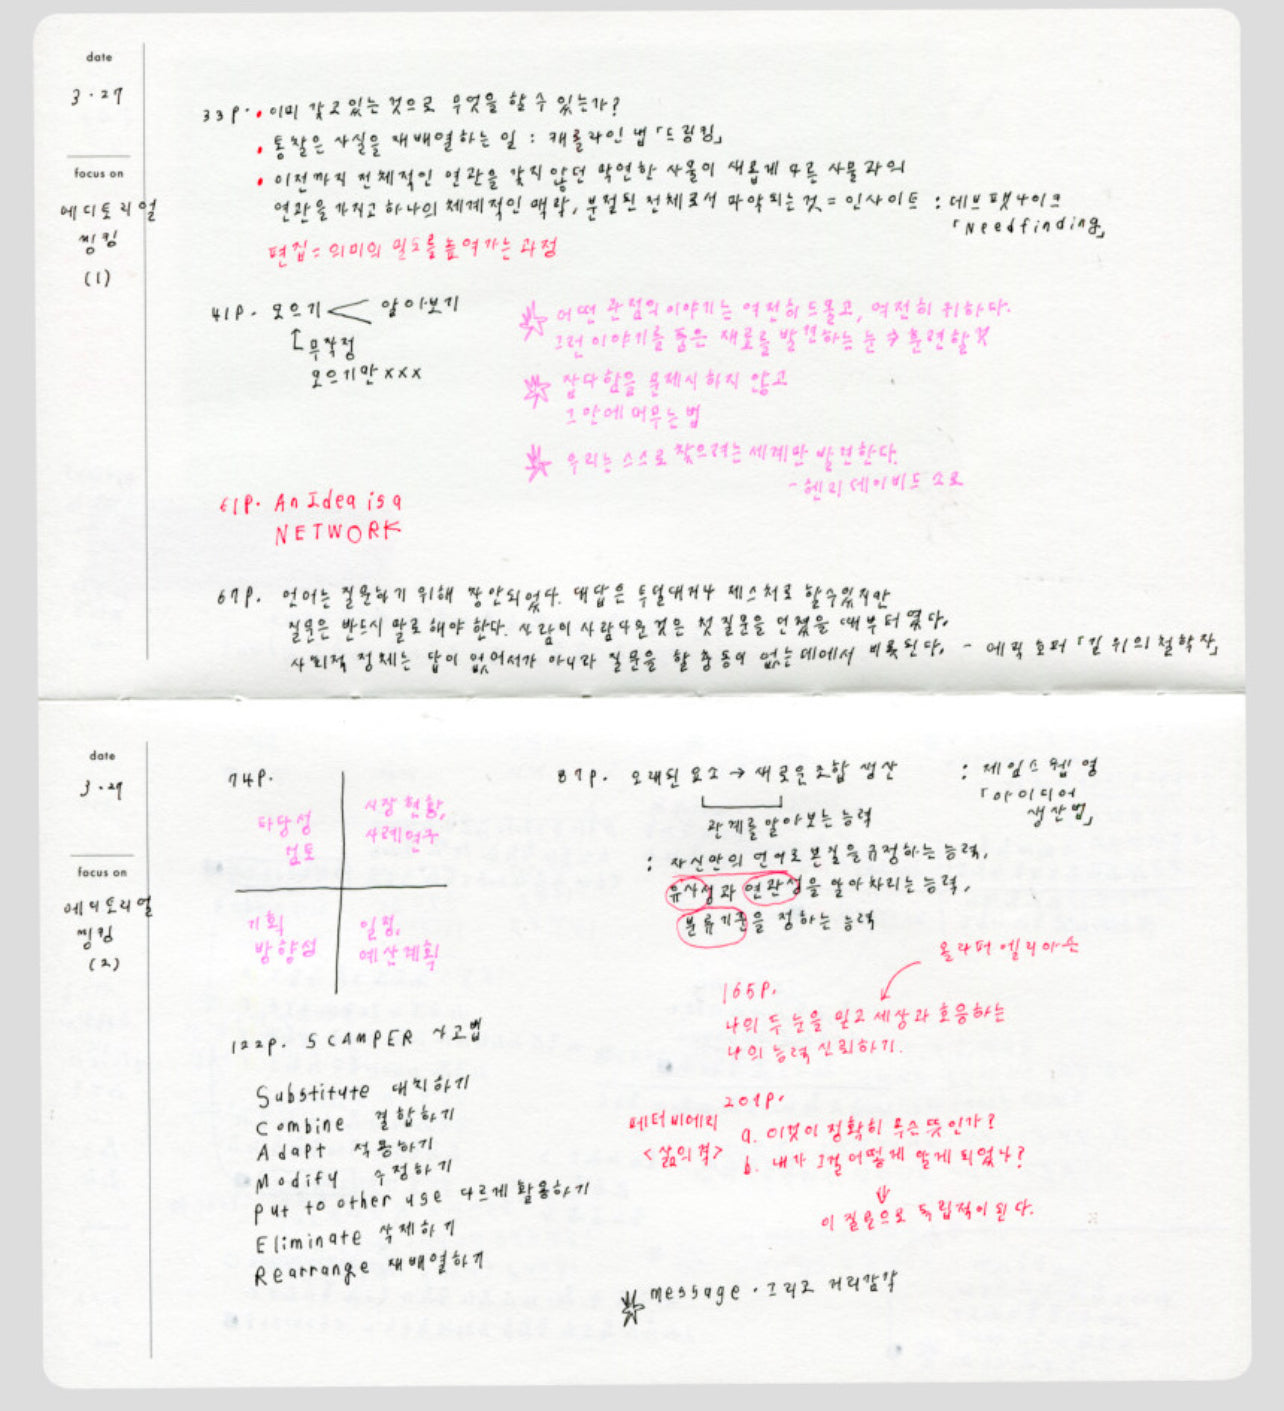 date
3.27
focus on
에디토리얼
씽킹
(1)
33p. • 이미 갖고 있는 것으로 무엇을 할 수 있는가?
• 통찰은 사실을 재배열하는 일 : 캐롤라인 냅 「드링킹」
• 이전까지 전체적인 연관을 갖지 않던 막연한 사물이 새롭게 다른 사물과의
연관을 가지고 하나의 체계적인 맥락, 분절된 전체로서 파악되는 것 = 인사이트 : 데브 팻나이크
「Needfinding」
편집 = 의미의 밀도를 높여가는 과정
41p. 모으기 < 알아보기
↑ 무작정
모으기만 xxx
☆ 어떤 관점의 이야기는 여전히 드물고, 여전히 귀하다.
그런 이야기를 품은 재료를 발견하는 눈 → 훈련할 것
☆ 잡다함을 문제시 하지 않고
그 안에 머무는 법
☆ 우리는 스스로 찾으려는 세계만 발견한다.
- 헨리 데이비드 소로
61p. An Idea is a
NETWORK
67p. 언어는 질문하기 위해 창안되었다. 대답은 투덜대거나 제스처로 할 수 있지만
질문은 반드시 말로 해야 한다. 사람이 사람다운 것은 첫 질문을 던졌을 때부터였다.
사회적 정체는 답이 없어서가 아니라 질문을 할 충동이 없는 데에서 비롯된다. - 에릭 호퍼 「길 위의 철학자」
date
3.27
focus on
에디토리얼
씽킹
(2)
74p.
타당성
검토
시장 현황,
사례연구
기획
방향성
일정,
예산계획
122p. SCAMPER 사고법
Substitute 대치하기
Combine 결합하기
Adapt 적용하기
Modify 수정하기
Put to other use 다르게 활용하기
Eliminate 삭제하기
Rearrange 재배열하기
87p. 오래된 요소 → 새로운 조합 생산 : 제임스 웹 영
「아이디어
생산법」
관계를 알아보는 능력
: 자신만의 언어로 본질을 규정하는 능력,
유사성과 연관성을 알아차리는 능력,
분류기준을 정하는 능력
올라퍼 엘리아슨
165p.
나의 두 눈을 믿고 세상과 호응하는
나의 능력 신뢰하기.
201p.
페터 비에리
<삶의 격>
a. 이것이 정확히 무슨 뜻인가?
b. 내가 그걸 어떻게 알게 되었나?
⇓
이 질문으로 독립적이 된다.
☆ message. 그리고 거리감각